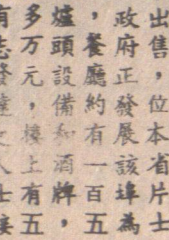 出售，位本省片士
政府正發展該埠為
，餐廳約有一百五
爐頭設備和酒牌，
多万元，樓上有五
有志發達之人士接